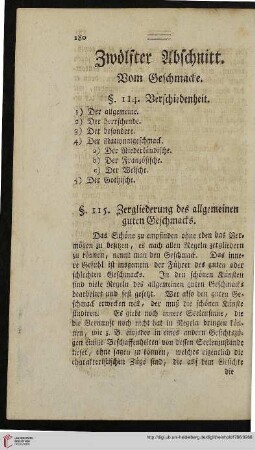 180
Zwölfter Abschnitt.
Vom Geschmacke.
§. 114. Verschiedenheit.
1) Der allgemeine.
2) Der herrschende.
3) Der besondere.
4) Der Nazionngeschmack.
a) Der Niederländische.
b) Der Französische.
c) Der Welsche.
5) Der Gothische.
§. 115. Zergliederung des allgemeinen
guten Geschmacks.
Das Schöne zu empfinden ohne eben das Ver-
mögen zu besitzen, es nach allen Regeln zergliedern
zu können, nennt man den Geschmack. Das inne-
re Gefühl ist insgemein der Führer des guten oder
schlechten Geschmacks. In den schönen Künsten
sind viele Regeln des allgemeinen guten Geschmacks
bearbeitet und fest gesetzt. Wer also den guten Ge-
schmack erwecken will, der muß die schönen Künste
studiren. Es giebt noch innere Seelensinne, die
die Vernunft noch nicht hat in Regeln bringen kön-
nen, wie z. B. einander in eines andern Gesichtszü-
gen
Beschaffenheiten von dessen Seelenzustande
lieset, ohne sagen zu können, welches eigentlich die
charakteristischen Züge sind, die auf dem Gesichte
die